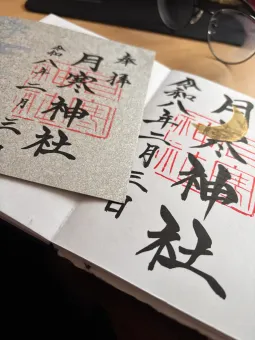 奉拝
月寒神社
令和八年二月三
月寒神社
令和八年二月三日